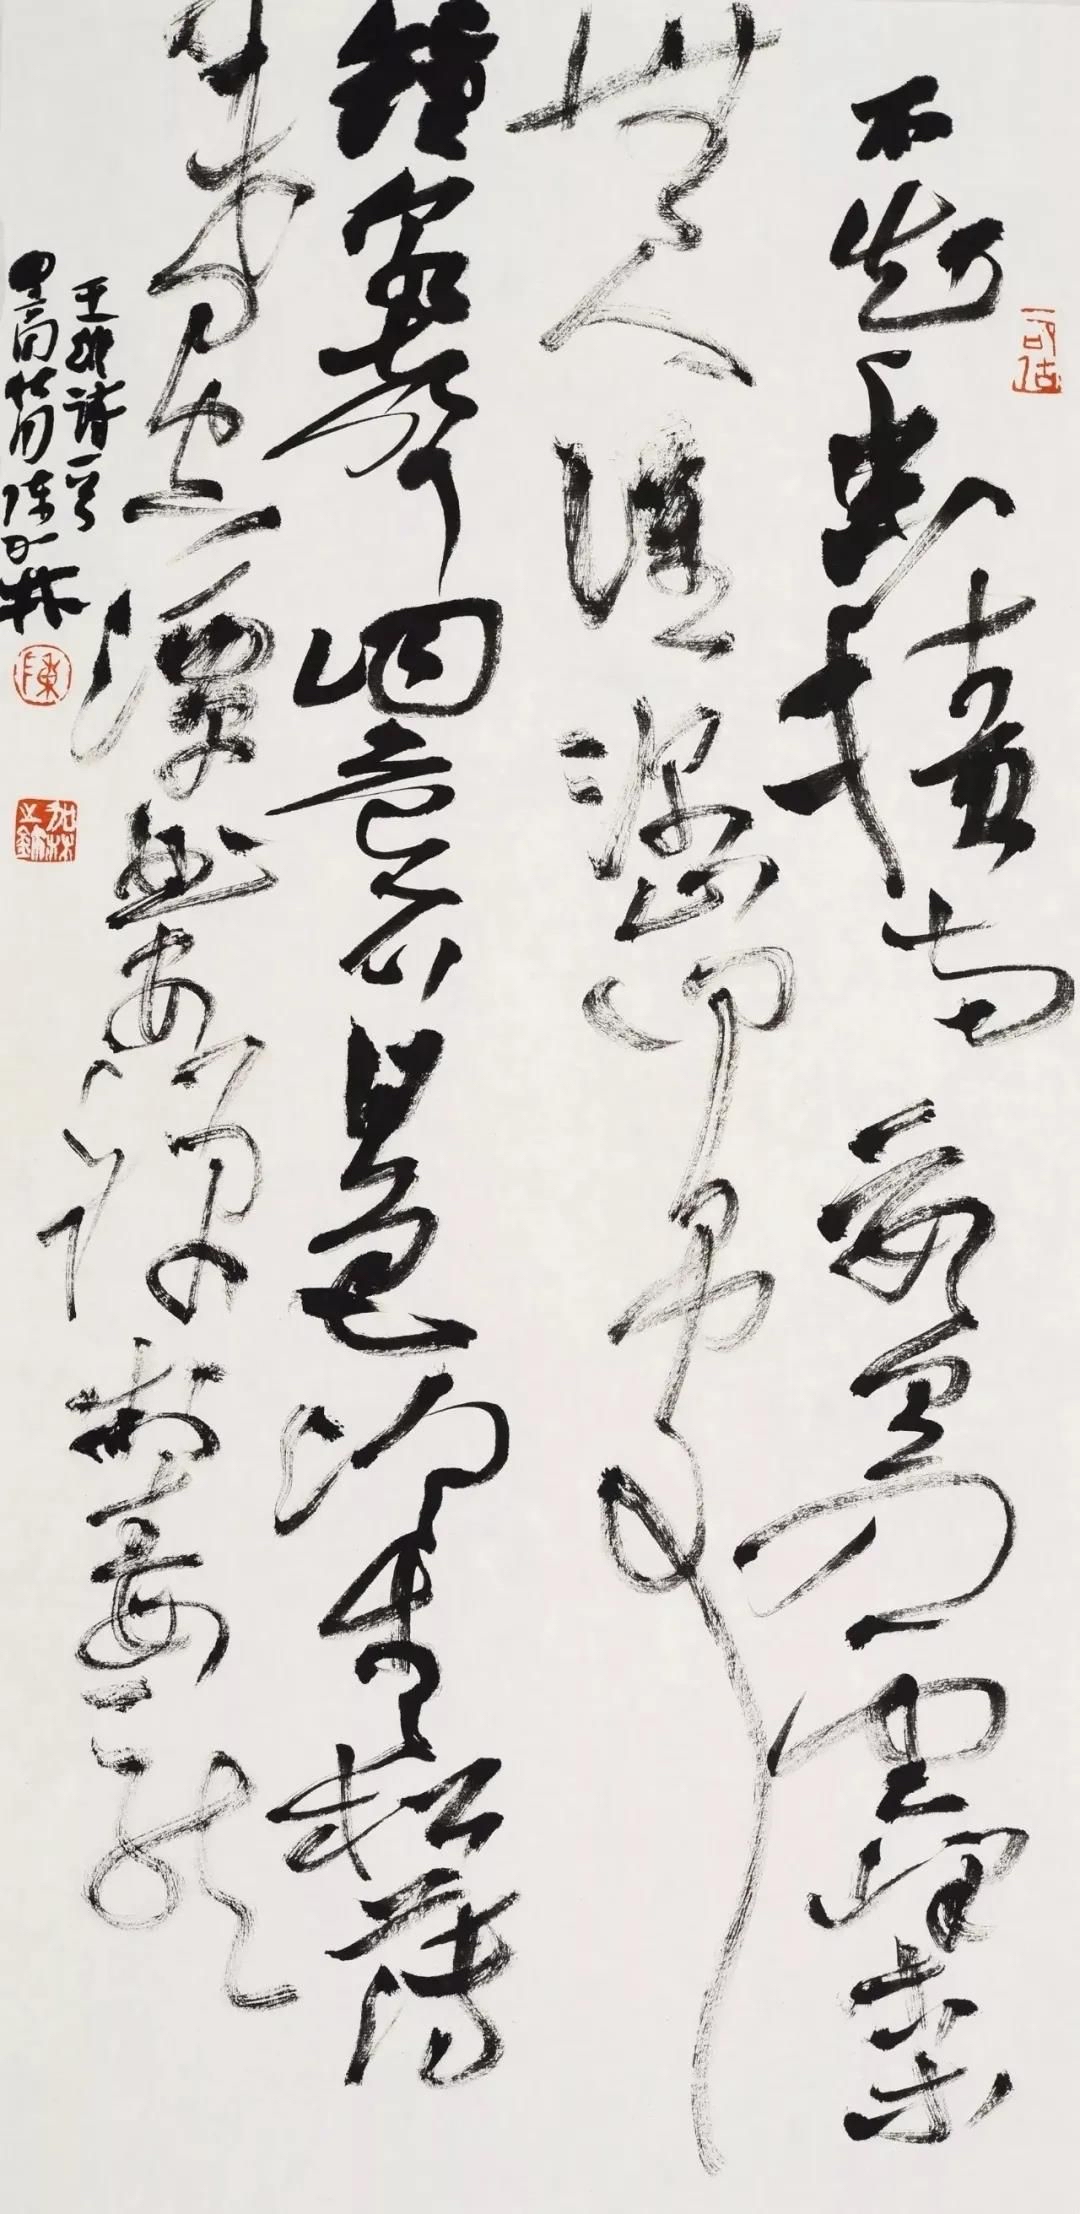 不知香積寺數里入雲峰古木
無人徑深山何處
鐘泉聲咽危石日色冷青松薄
暮空潭曲安禪制毒龍
王維詩一首
陳加林
陳
加林之鉨